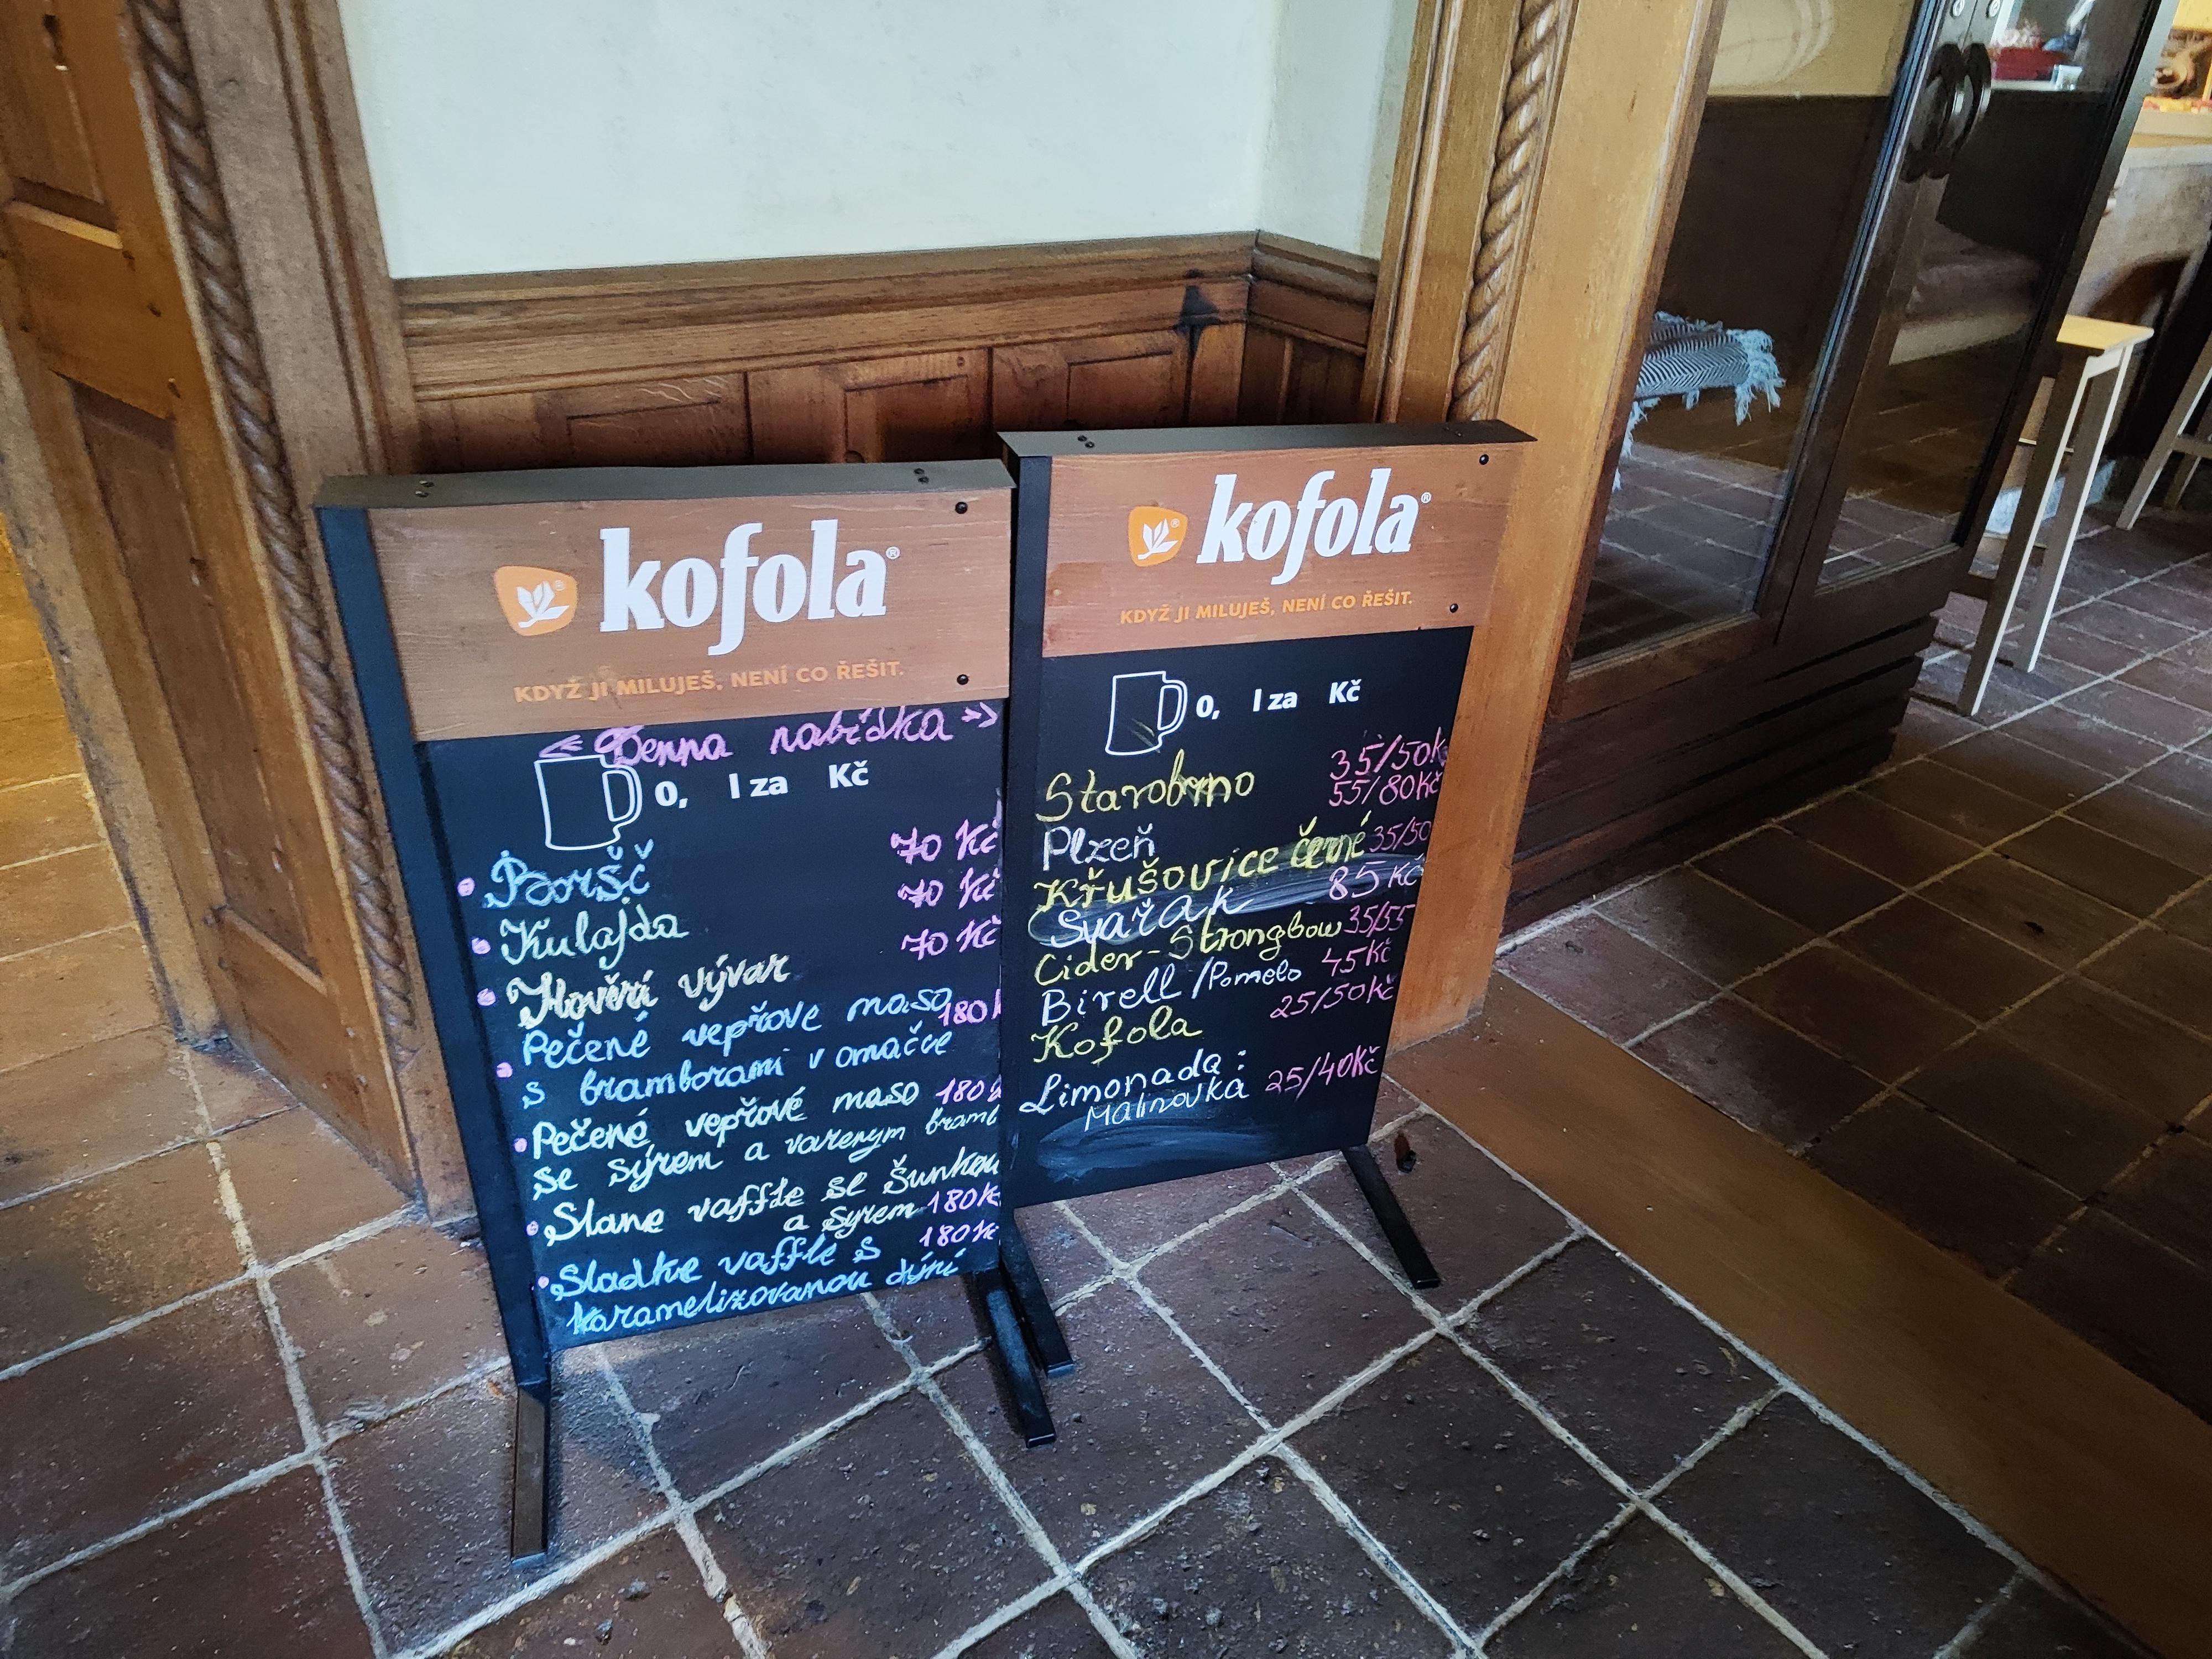 kofola®
KDYŽ JI MILUJEŠ, NENÍ CO ŘEŠIT.
Denna nabídka
0, l za Kč
Boršč 70 Kč
Kulajda 70 Kč
Hovězí vývar 70 Kč
Pečené vepřove maso 180
s bramborami v omačce
Pečené vepřové maso 180
se sýrem a varenym bramb
Slane vaffle se šunkou
a syrem 180 K
Sladke vaffle s 180 Kč
karamelizovanou dýní
kofola®
KDYŽ JI MILUJEŠ, NENÍ CO ŘEŠIT.
0, l za Kč
Starobrno 35/50K
Plzeň 55/80Kč
Křušovice černé 35/50
Svařák 85 Kč
Cider-Strongbow 35/55
Birell/Pomelo 45Kč
Kofola 25/50Kč
Limonada:
Malinovka 25/40Kč